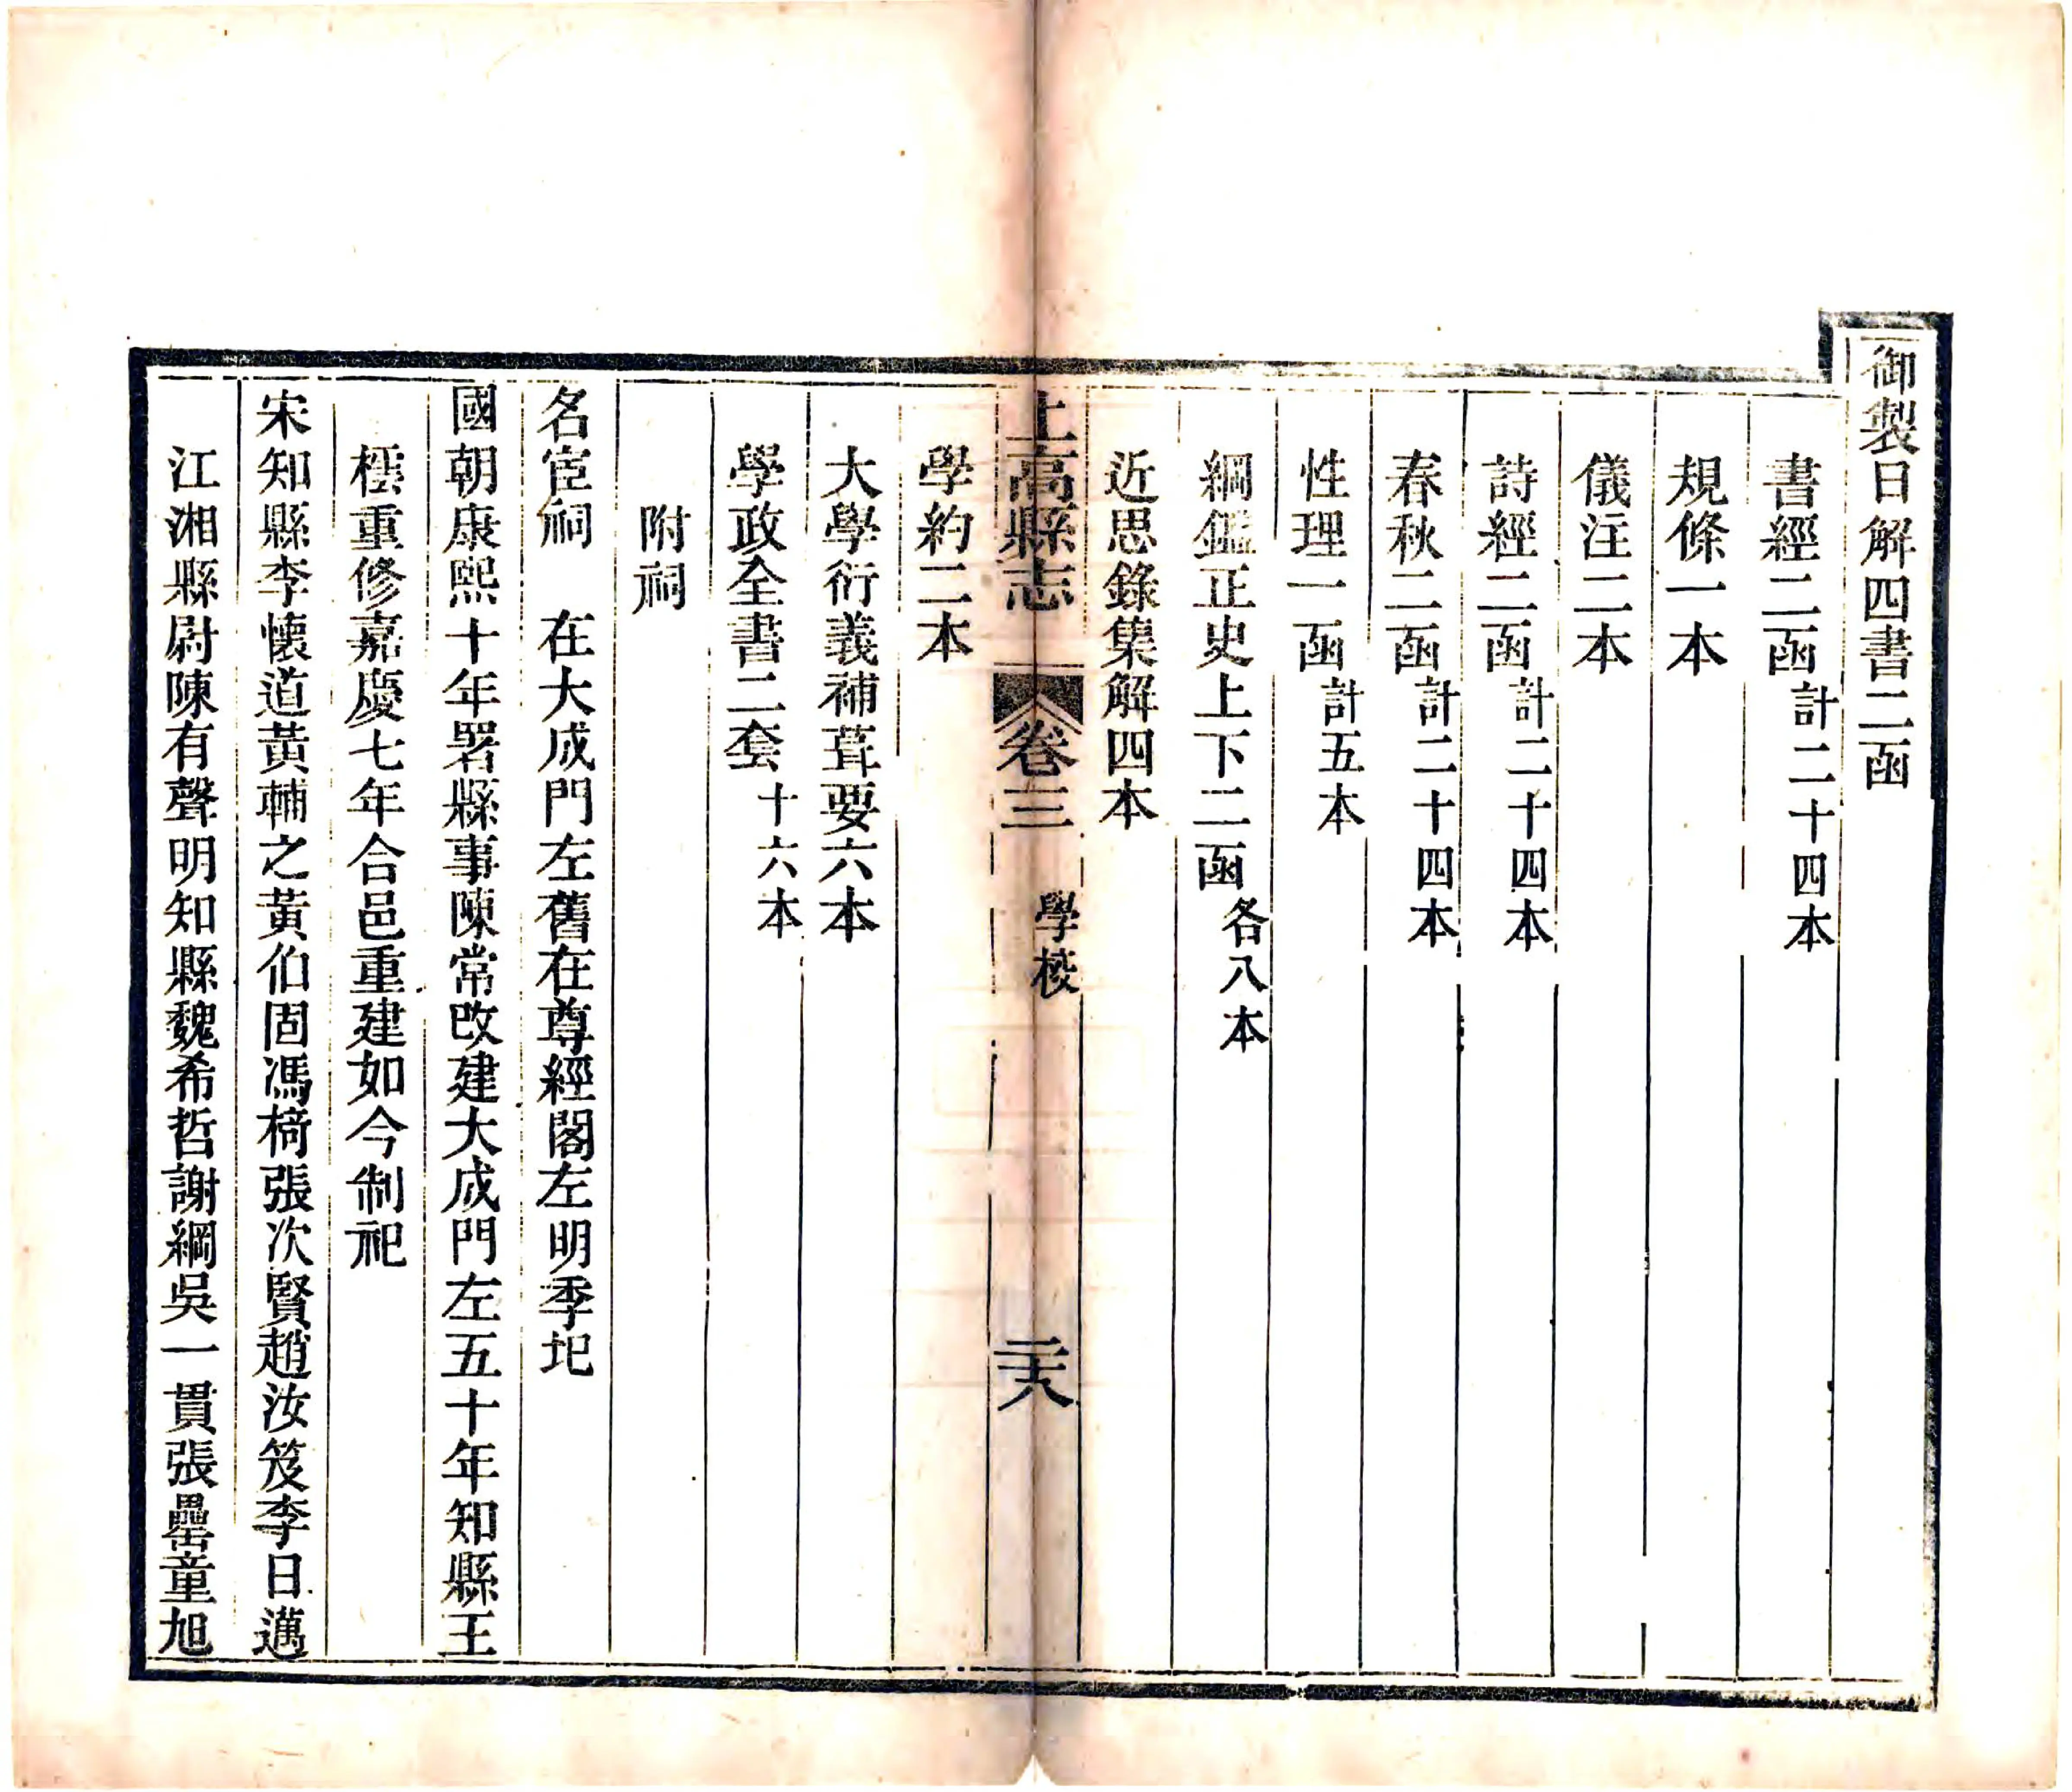 御製日解四書二函
書經二函計二十四本
規條一本
儀注二本
詩經二函計二十四本
春秋二函計二十四本
性理一函計五本
綱鑑正史上下二函各八本
近思錄集解四本
上高縣志 卷三 學校 二十八
學約二本
大學衍義補葺要六本
學政全書二套十六本
附祠
名宦祠 在大成門左舊在尊經閣左明季圯
國朝康熙十年署縣事陳常改建大成門左五十年知縣王
標重修嘉慶七年合邑重建如今制祀
宋知縣李懷道黃輔之黃伯固馮椅張次賢趙汝笈李日邁
江湘縣尉陳有聲明知縣魏希哲謝綱吳一貫張罍童旭